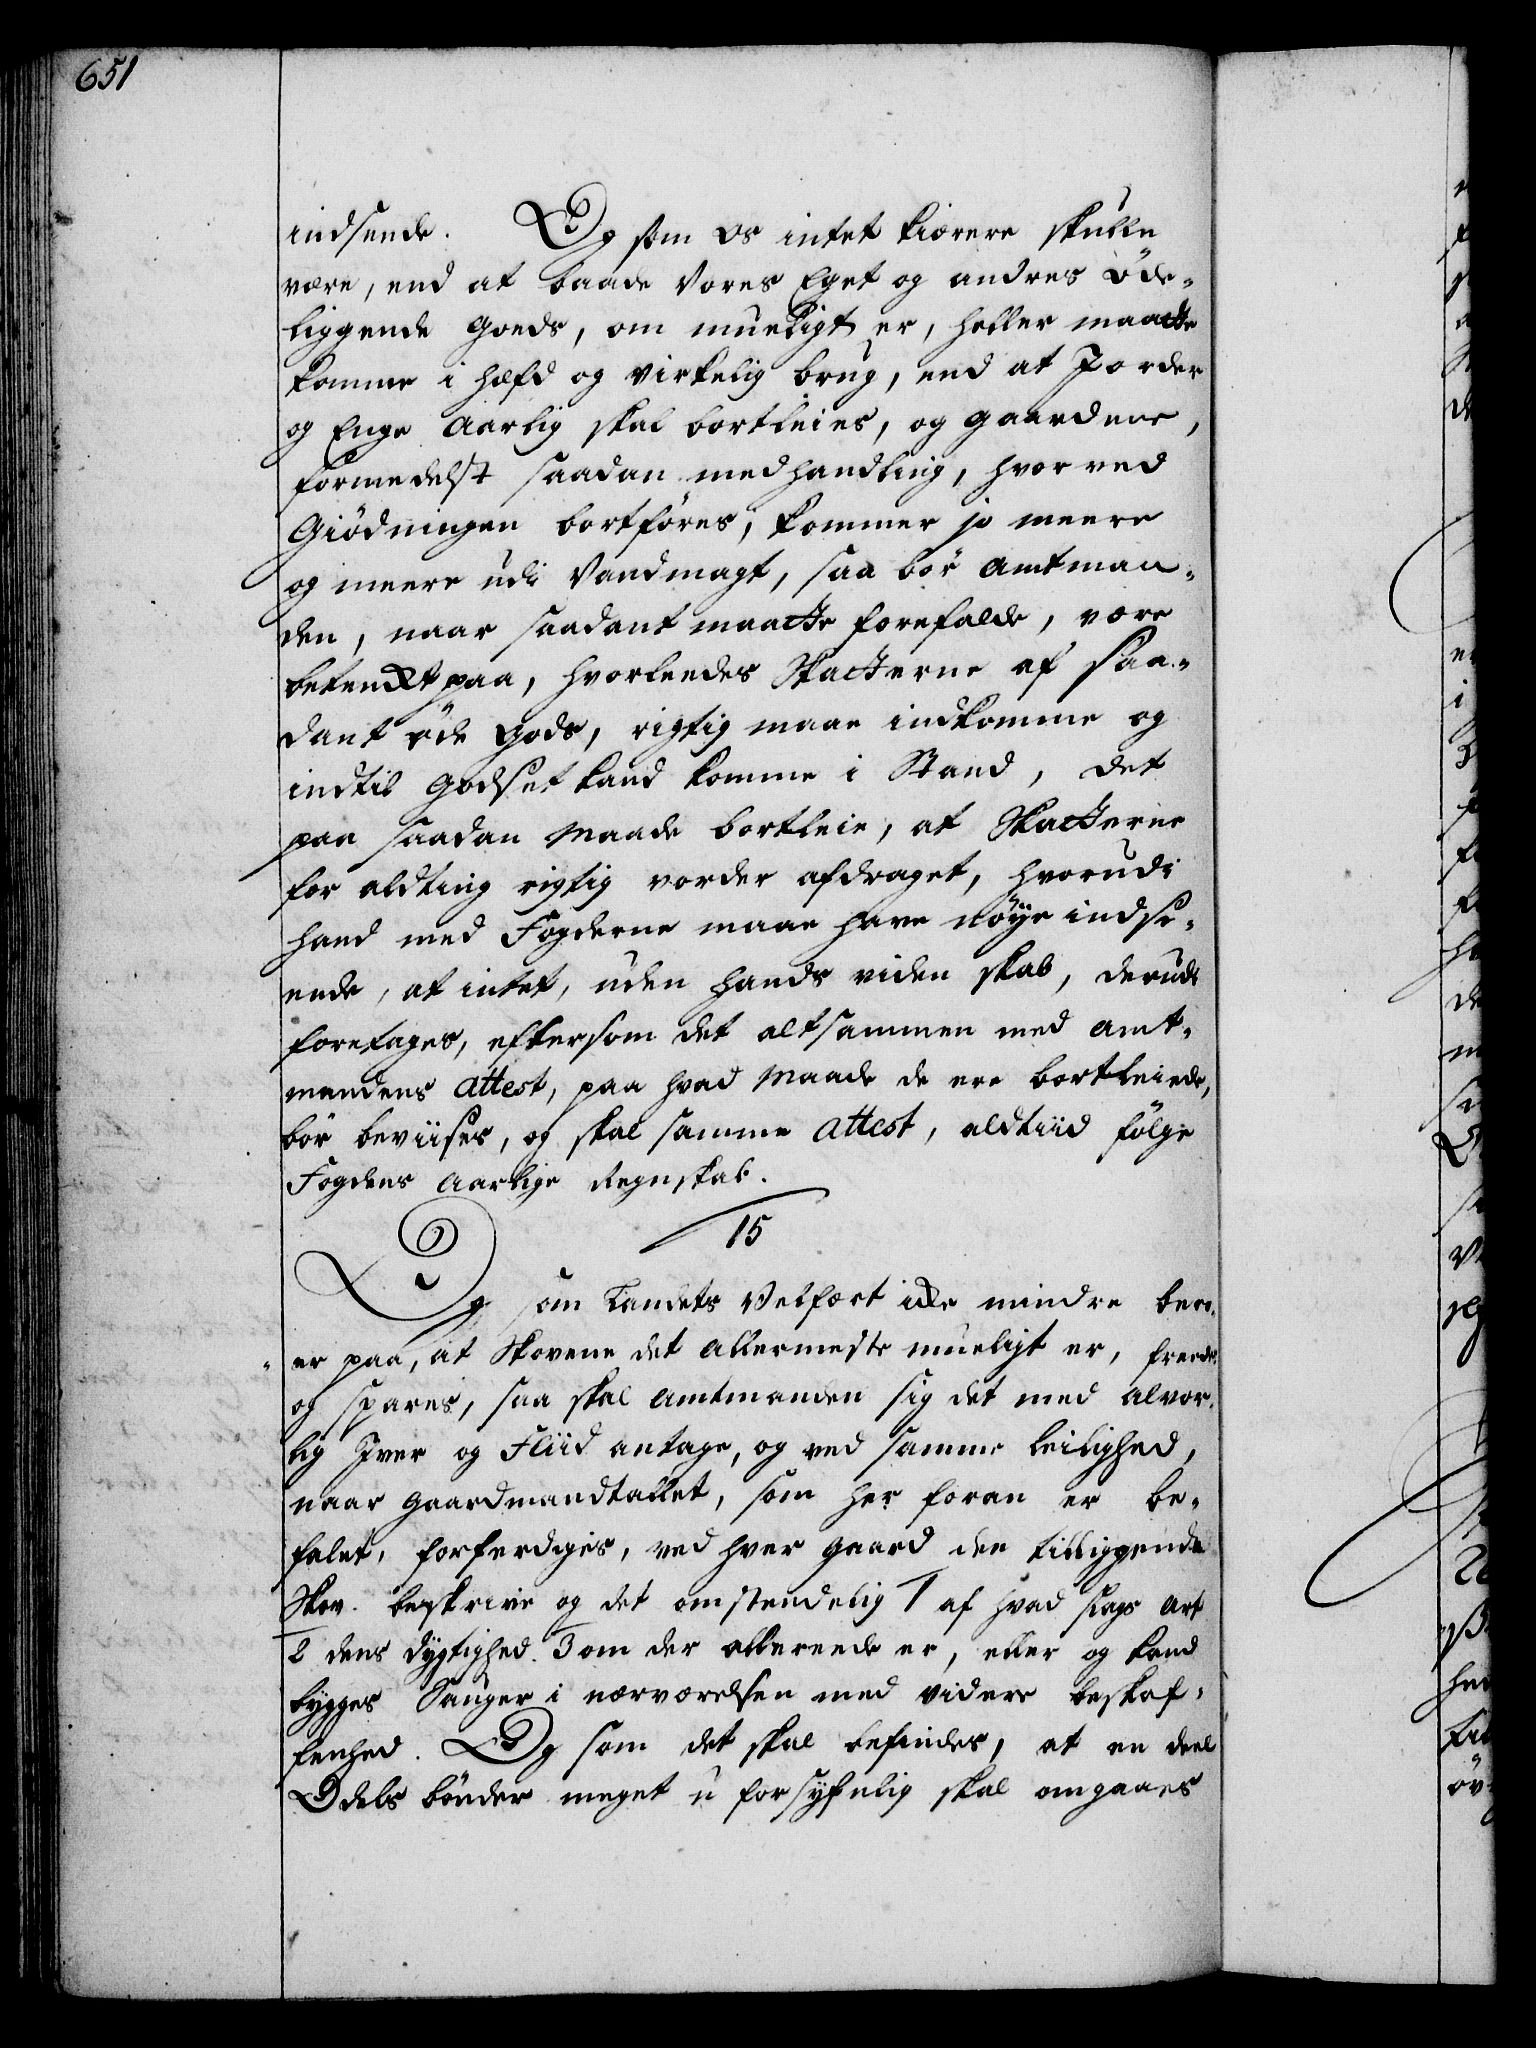 651
indsende. Og som Os intet kiærere skulle
være, end at baade Vores Eget og andres Øde-
liggende Goeds, om mueligt er, heller maatte
komme i Hæfd og virkelig brug, end at Jorder
og Enge Aarlig skal bortleies, og Gaardene,
formedelst saadan medhandling, hvorved
Giödningen bortföres, kommer jo meere
og meere udi Vandmagt, saa bör Amtman-
den, naar saadant maatte forefalde, være
betenckt paa, hvorleedes Skatterne af saa-
dant øde Gods, rigtig maae indkomme og
indtil Godset kand komme i Stand, det
paa saadan Maade bortleie, at Skatterne
for alding rigtig vorder afdraget, hvorudi
hand med Fogderne maae have nöye indse-
ende, at intet, uden hands viden skab, derudi
foretages, eftersom det altsammen med Amt-
mandens Attest, paa hvad Maade de ere bortleiede,
bör beviises, og skal samme Attest, aldtiid følge
Fogdens Aarlige Regnskab.
15
Og som Landets Velfært icke mindre bero-
er paa, at Skovene det allermeste mueligt er, freedes
og spares, saa skal Amtmanden sig det med alvor-
lig Iver og Fliid antage, og ved samme leilighed,
naar Gaardmandtallet, som her foran er be-
falet, forferdiges, ved hver Gaard den tilliggende
Skov beskrive og det omstendelig 1 af hvad slags Art
2 dens dygtighed. 3 om der allereede er, eller og kand
bygges Sauger i nærværelsen med videre beskaf-
fenhed. Og som det skal befindes, at en deel
Odels bönder meget u forsynlig skal omgaaes